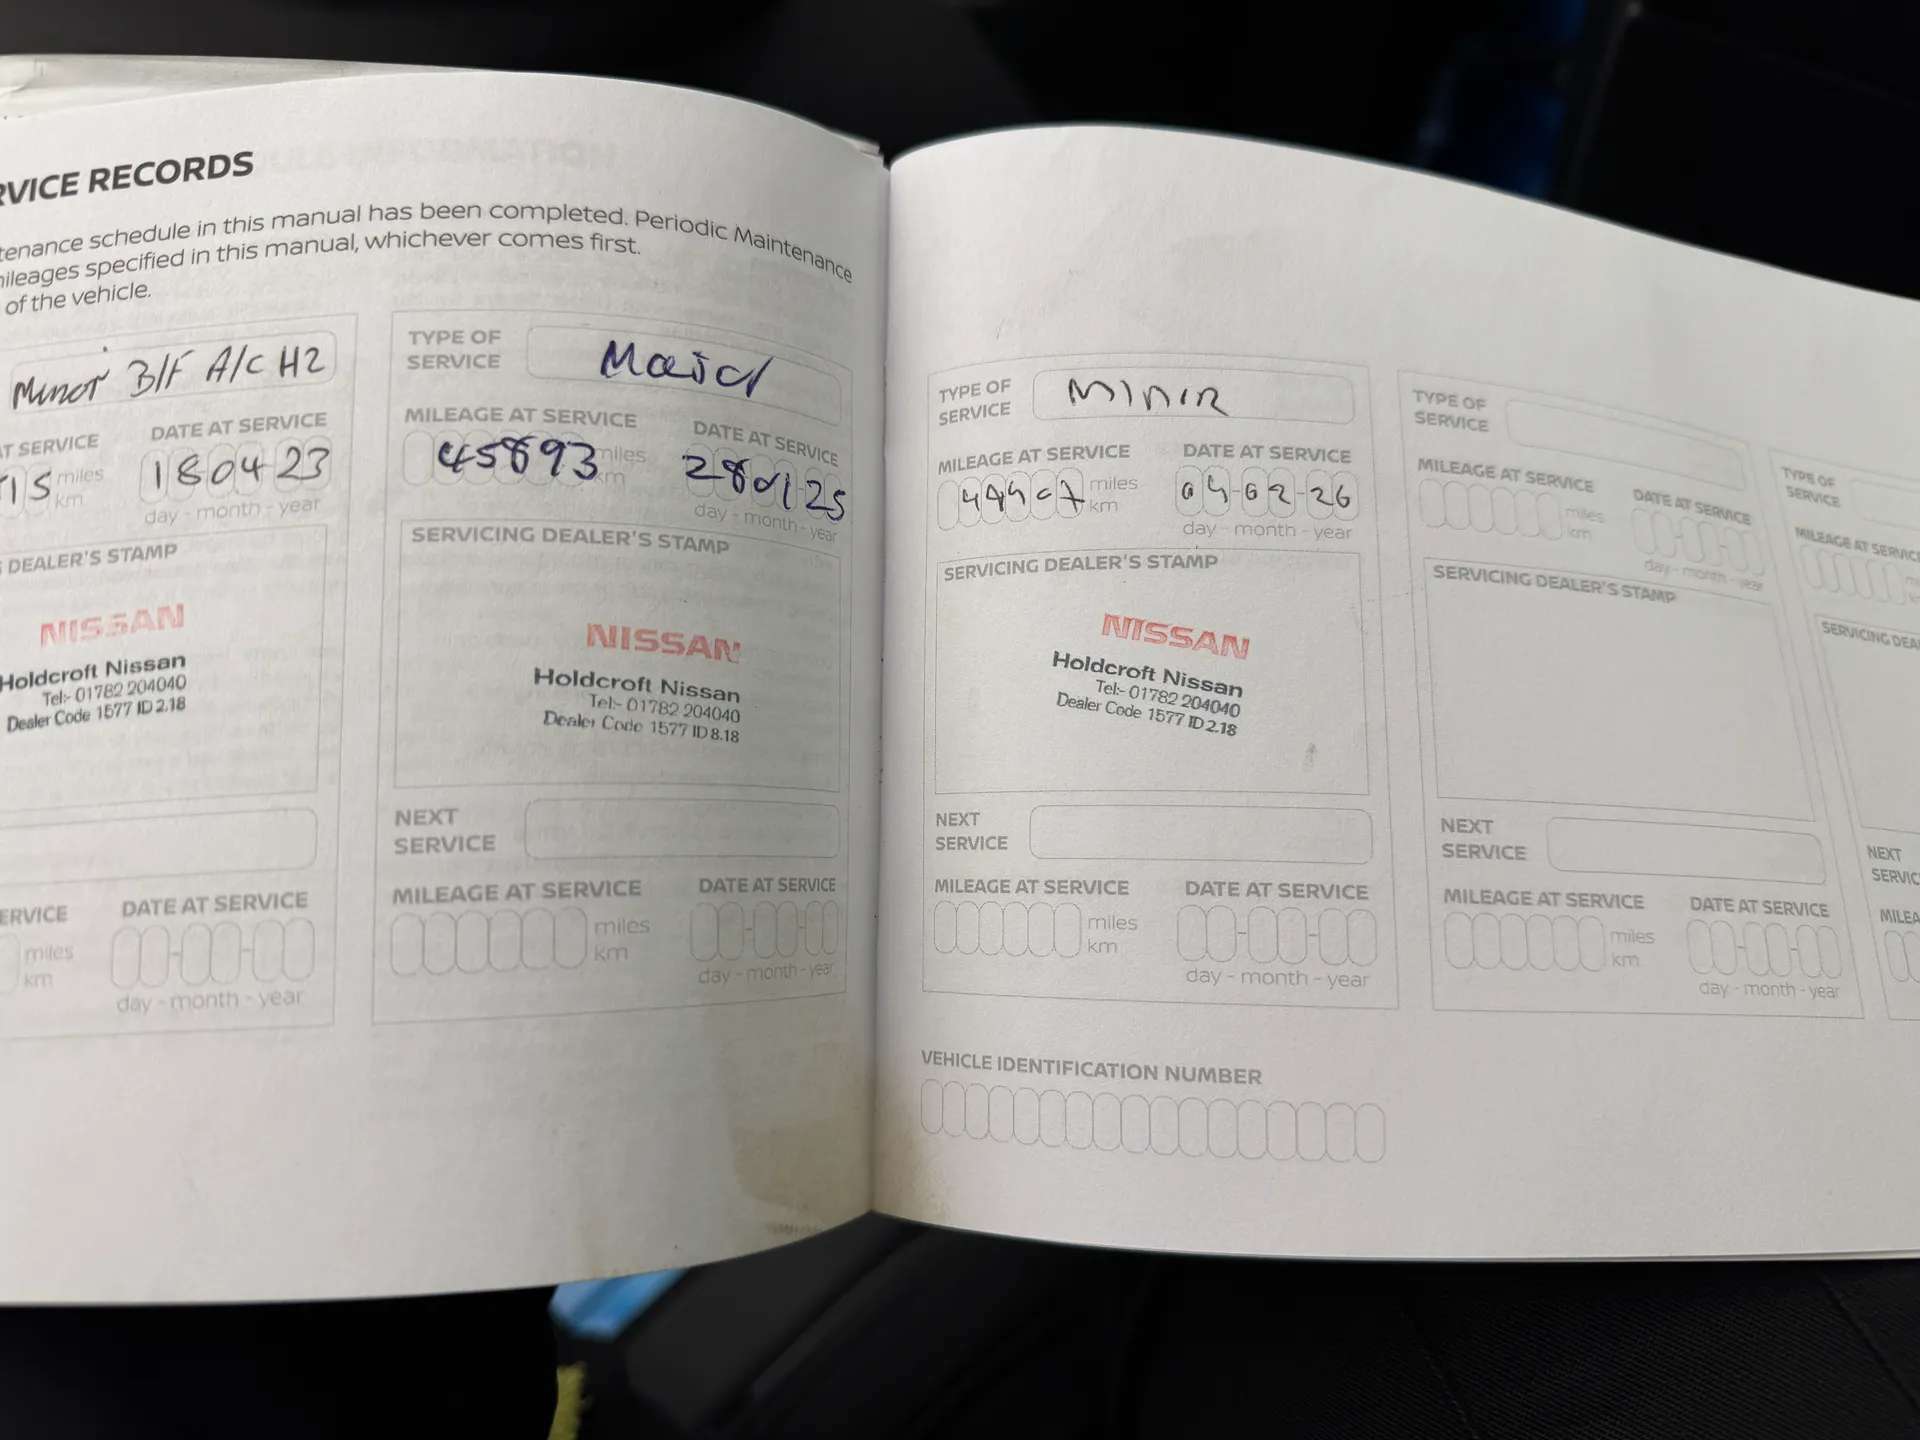 RVICE RECORDS
tenance schedule in this manual has been completed. Periodic Maintenance
mileages specified in this manual, whichever comes first.
of the vehicle.
Minor B/F A/C H2
AT SERVICE
DATE AT SERVICE
15 miles
km
180423
day - month - year
DEALER'S STAMP
NISSAN
Holdcroft Nissan
Tel:- 01782 204040
Dealer Code 1577 ID 2.18
ERVICE
DATE AT SERVICE
miles
km
day - month - year
TYPE OF
SERVICE
MILEAGE AT SERVICE
DATE AT SERVICE
45893 miles
km
280125
day - month - year
SERVICING DEALER'S STAMP
NISSAN
Holdcroft Nissan
Tel:- 01782 204040
Dealer Code 1577 ID 8.18
NEXT
SERVICE
MILEAGE AT SERVICE
DATE AT SERVICE
miles
km
day - month - year
TYPE OF
SERVICE
Minor
MILEAGE AT SERVICE
DATE AT SERVICE
miles
km
04-02-26
day - month - year
SERVICING DEALER'S STAMP
NISSAN
Holdcroft Nissan
Tel:- 01782 204040
Dealer Code 1577 ID 2.18
NEXT
SERVICE
MILEAGE AT SERVICE
DATE AT SERVICE
miles
km
day - month - year
VEHICLE IDENTIFICATION NUMBER
TYPE OF
SERVICE
MILEAGE AT SERVICE
DATE AT SERVICE
miles
km
day - month - year
SERVICING DEALER'S STAMP
NEXT
SERVICE
MILEAGE AT SERVICE
DATE AT SERVICE
miles
km
day - month - year
TYPE OF
SERVICE
MILEAGE AT SERVICE
SERVICING DEA
NEXT
SERVIC
MILEA